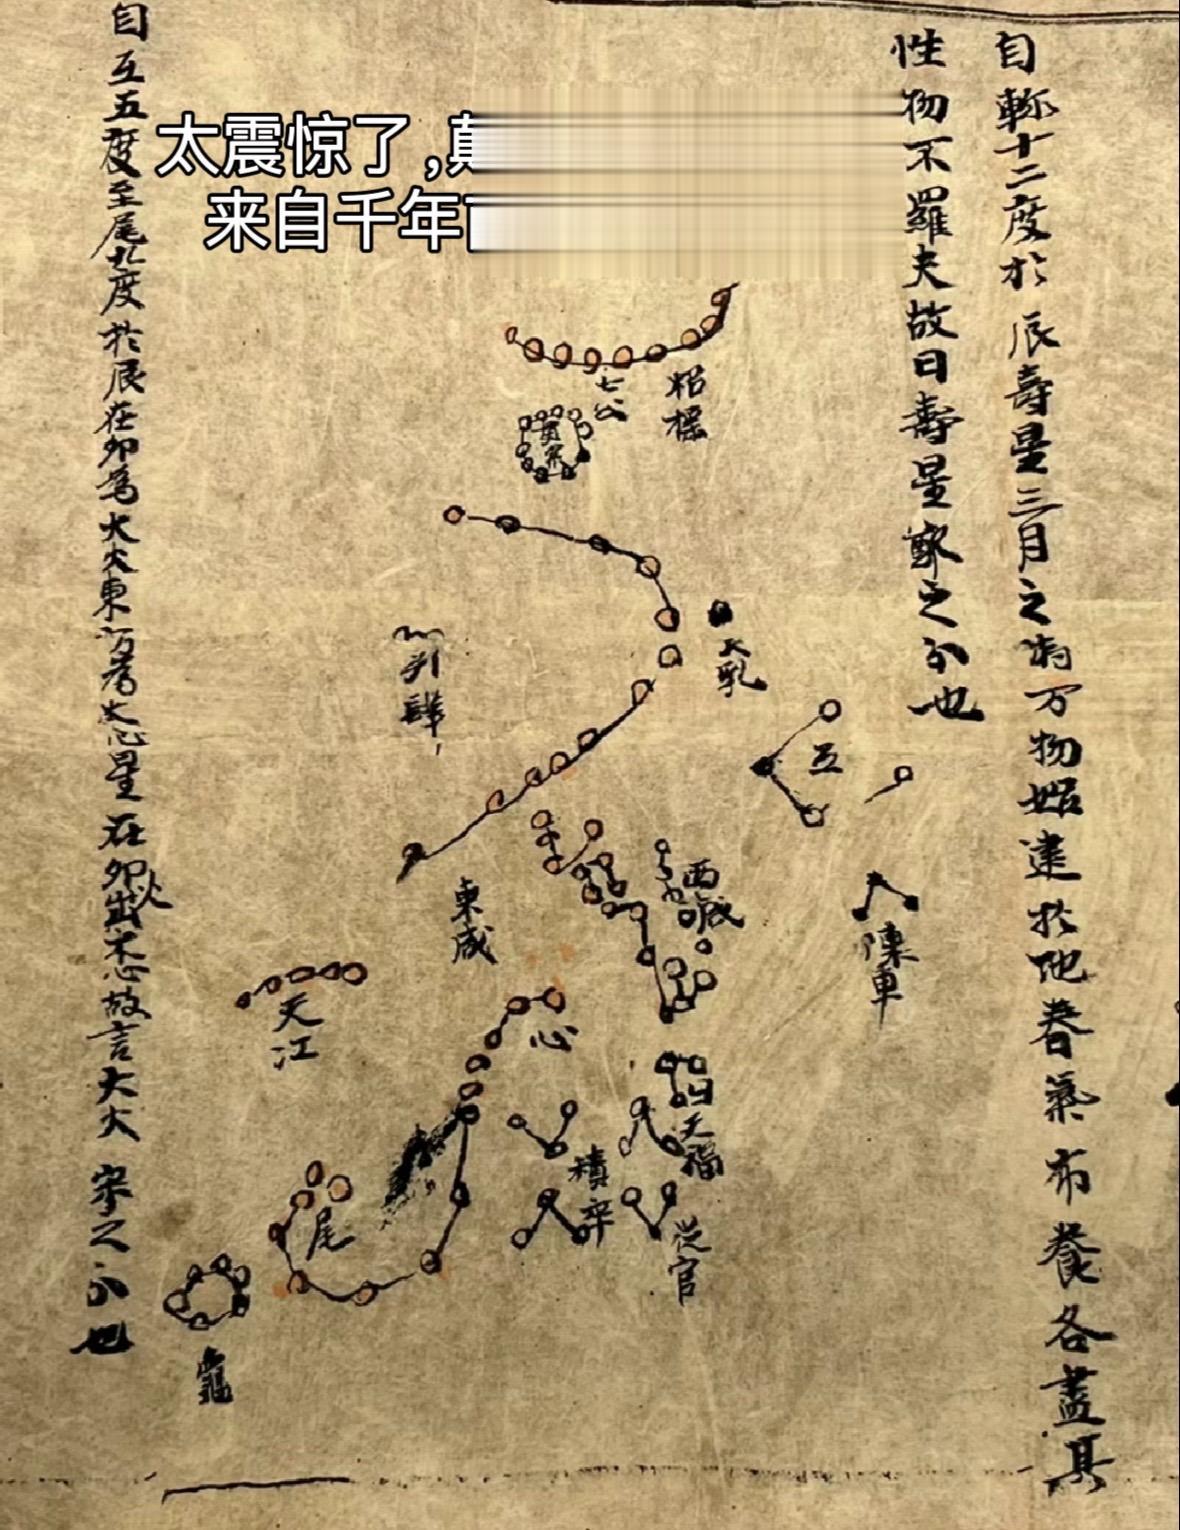 太震惊了,
来自千年
自軫十二度於辰壽星三月之時万物始達於地春氣布養各盡其
性物不羅夭故曰壽星鄭之分也
招摇
七公
貫索
天乳
列肆
互
西咸
東咸
陳車
天江
心
天福
積卒
從官
尾
龜
自互五度至尾九度於辰在卯為大火東方為木心星在卯火出木心故言大火宋之分也